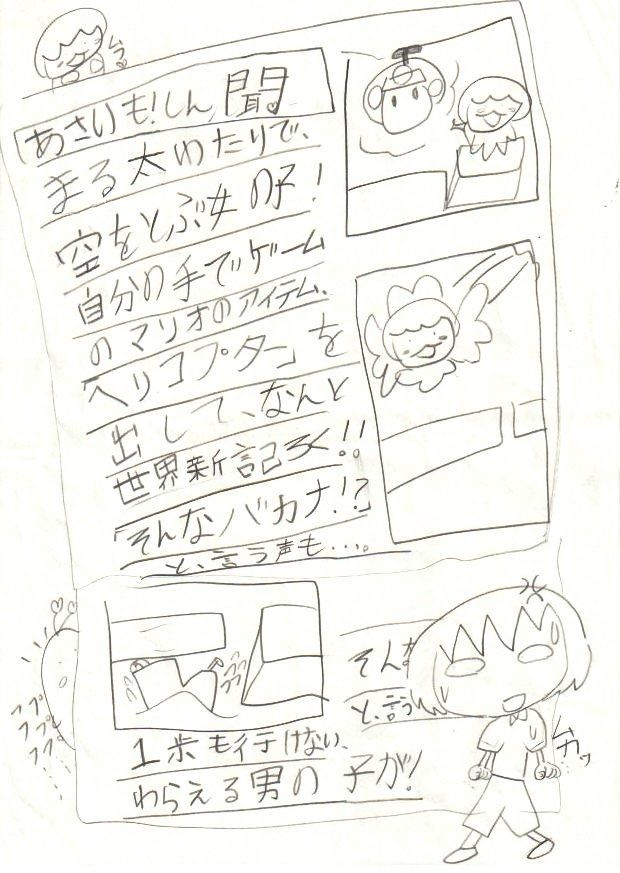 ムフ。
あさいも!しん聞。
まる太わたりで、
空をとぶ女の子!
自分の手でゲーム
のマリオのアイテム、
「ヘリコプター」を
出して、なんと
世界新記ろく!!
「そんなバカナ!?」
と、言う声も…。
そんな
と、言う
ムカッ
フフ
フプ。
1歩も行けない、
わらえる男の子が!